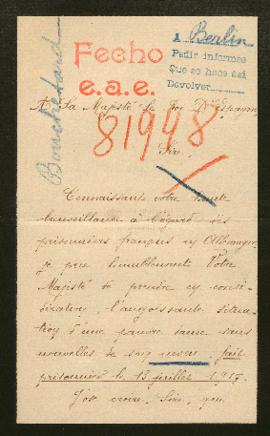 A Berlin
Pedir informes
Que se hace así
Devolver
Fecho
e.a.e.
Bouchetard
A Sa Majesté le Roi d'Espagne
81998
Sire,
Connaissant votre haute
bienveillance à l'égard des
prisonniers français en Allemagne
je prie humblement Votre
Majesté de prendre en consi-
dération l'angoissante situa-
tion d'une pauvre sans
nouvelles de son neveu, fait
prisonnier le 13 juillet 1915.
J'ose croire, Sire, que